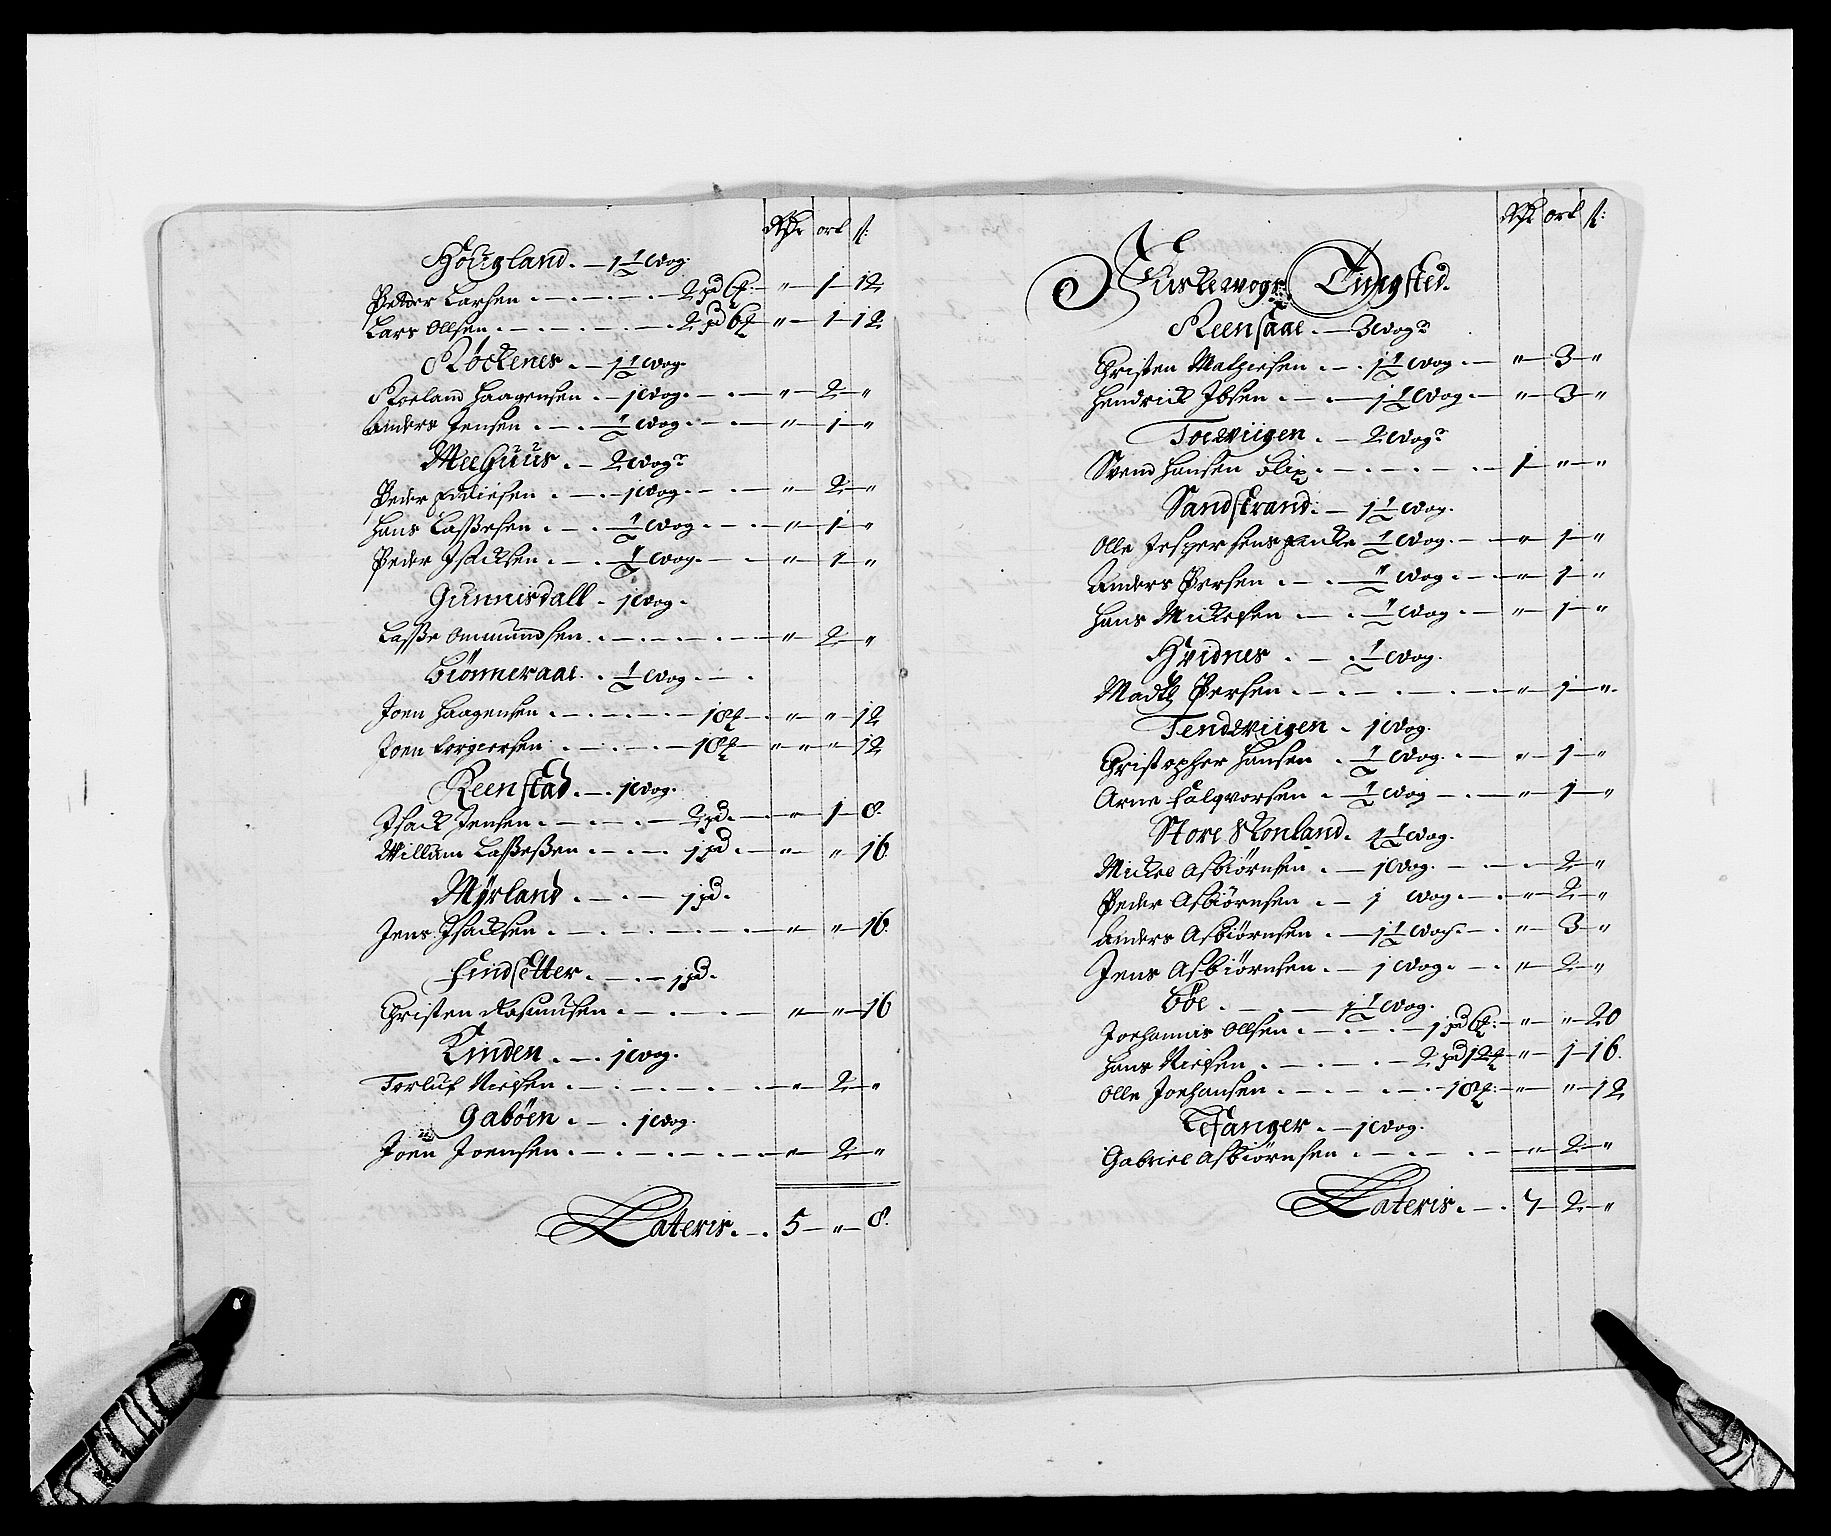 Rdr ort ß:
Hougland. — 1½ wog.
Peder Larsen . — . — . — 2 pd 6 ℔ — " — 1 — 12
Lars Ollsen . — . — . — 2 pd 6 ℔ — " — 1 — 12
Röckenes . — 1½ wog.
Roeland Haagensen . — 1 wog. — . — " — 2 — "
Anders Jensen . — . ½ wog. — . — " — 1 — "
Meehuus . — 2 wogr
Peder Eddiesen . — . 1 wog. — . — " — 2 — "
Hans Lassesen . — . ½ wog. — . — " — 1 — "
Peder Isacksen . — . ½ wog. — . — " — 1 — "
Gunnisdall . 1 wog.
Lasse Ommundsen . — . — . — " — 2 — "
Biönneraae . ½ wog. — .
Joen Haagensen . — . — . — 18 ℔ — " — " — 12
Joen Torgersen . — . — . — 18 ℔ — " — " — 12
Reenstad . — . 1 wog.
Isack Jensen . — . — . — 2 pd. — " — 1 — 8.
Willam Lassesen . — . — 1 pd. — " — " 16
Mÿrland . — . — 1 pd.
Jens Isacksen . — . — . — . — " — " 16
Findsetter . — . — 1 pd.
Christen Rasmusen . — . — . — " — " — 16
Linden . — . 1 wog.
Torluf Nielsen . — . — . — " — 2 — "
Gaböen . — . 1 wog.
Joen Joensen . — . — . — " — 2 — "
Lateris . — . 5 — " — 8.
Rdr ort ß:
Kiskewogs Tingsted.
Reensaae . — 3 wogr
Christen Mathiesen . — . 1½ wog. — " — 3 — "
Hendrick Ibsen . — . — 1½ wog. — " — 3 — "
Toeviigen . — 2 wogr
Svend Hansen Blix . — . — . — 1 — " — "
Sandstrand . — 1½ wog.
Olle Jespersens encke ½ wog. — " — 1 — "
Anders Persen . — . ½ wog. — " — 1 — "
Hans Mickesen . — . ½ wog. — " — 1 — "
Hvidnes . — . ½ wog.
Madtz Persen . — . — . — " — 1 — "
Tendeviigen . 1 wog.
Christopher Hansen . ½ wog. — " — 1 — "
Arne Halqvorsen . ½ wog — . — " — 1 — "
Store Skonland . 4½ wog.
Mickel Asbiörnsen . — 1 wog. — . — . 2 — "
Peder Asbiörnsen . — 1 wog. — " — 2 — "
Anders Asbiörnsen . — 1½ wog. — . " — 3 — "
Jens Asbiörnsen . — 1 wog. — . " — 2 — "
Böe . — . — 1½ wog.
Joehannis Ollsen . — . — . — 1 pd 6 ℔: — " — " — 20
Hans Nielsen . — . — . — 2 pd 12 ℔ — " — 1 — 16.
Olle Joehansen . — . — . — 18 ℔: — " — " — 12
Efanger . — 1 wog.
Gabriel Asbiörnsen . — . — . — " — 2 — "
Lateris . — . 7 — 2 — "